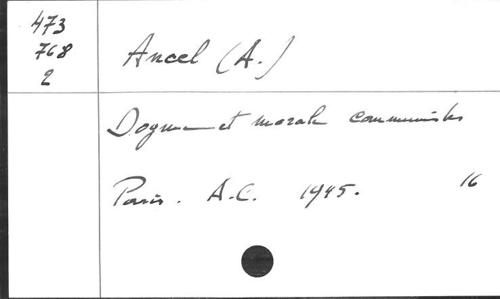 473
768
2
Ancel (A.)
Dogme et morale communistes
Paris. A.C. 1945. 16